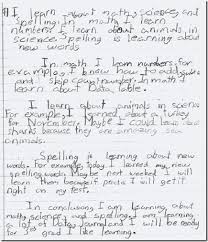 I learn about math, science, and
spelling. In math I learn
numbers. I learn about animals in
science. Spelling is learning about
new words
In math I learn numbers. for
example, I know how to add
and skip count number. In math I
learn about Data table.
I learn about animals in science
For example, I learned about a turkey
for November. Maybe I could learn
sharks because they are amazing sea
animals.
Spelling is learning about new
words. For example, today I learned my new
spelling words. Maybe next week I will
learn them because I will get it
right on my test.
In conclusion, I am learning about
math, science, and spelling. I am learning
a lot of data, journal and I will be
ready for life.